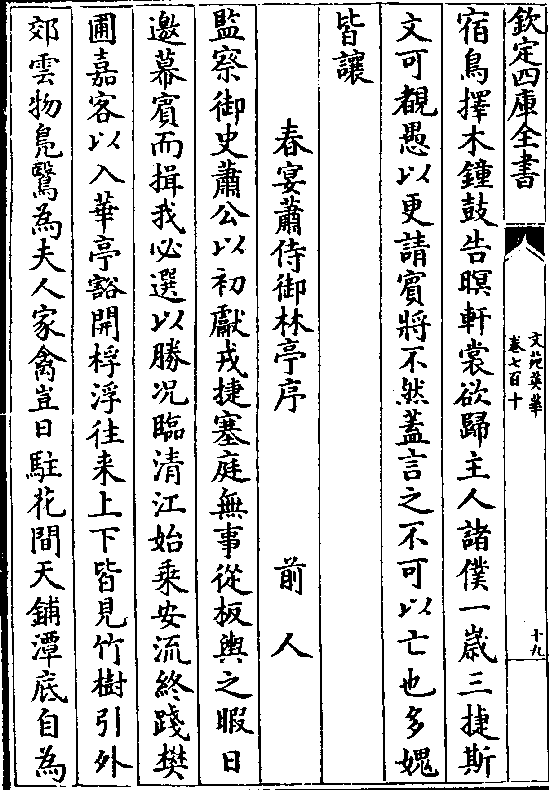 欽定四庫全書
文苑英華
卷七百十
十九
宿鳥擇木鐘鼓告暝軒裳欲歸主人諸僕一歲三捷斯
文可覩愚以更請賓將不然蓋言之不可以亡也多媿
皆讓
春宴蕭侍御林亭序 前人
監察御史蕭公以初獻戎捷塞庭無事從板輿之暇日
邀幕賓而揖我必選以勝况臨清江始乗安流終踐樊
圃嘉客以入華亭豁開桴浮往来上下皆見竹樹引外
郊雲物鳬鷖為夫人家禽豈日駐花間天鋪潭底自為